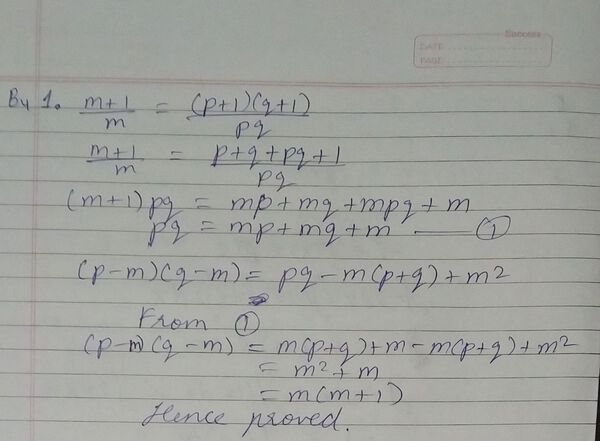 Success
DATE
PAGE
By 1. (m+1)/m = (p+1)(q+1)/pq
(m+1)/m = (p+q+pq+1)/pq
(m+1)pq = mp+mq+mpq+m
pq = mp+mq+m —— ①
(p-m)(q-m) = pq-m(p+q)+m²
From ①
(p-m)(q-m) = m(p+q)+m-m(p+q)+m²
= m²+m
= m(m+1)
Hence proved.